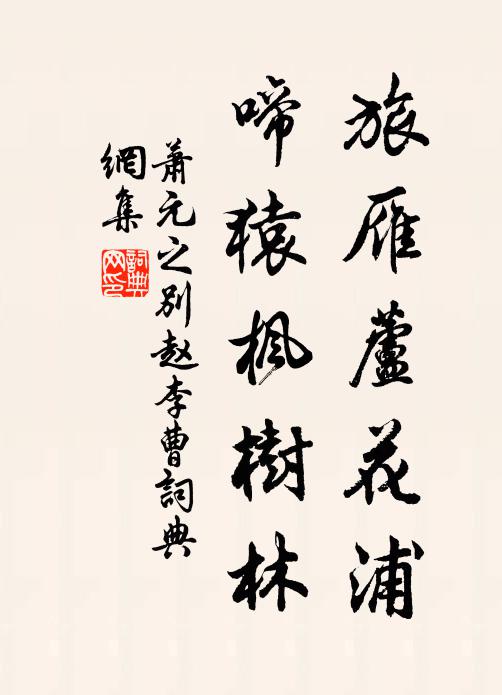 旅雁蘆花浦
啼猿楓樹林
蕭元之別赵李曹詞典
網集
詞典
网印